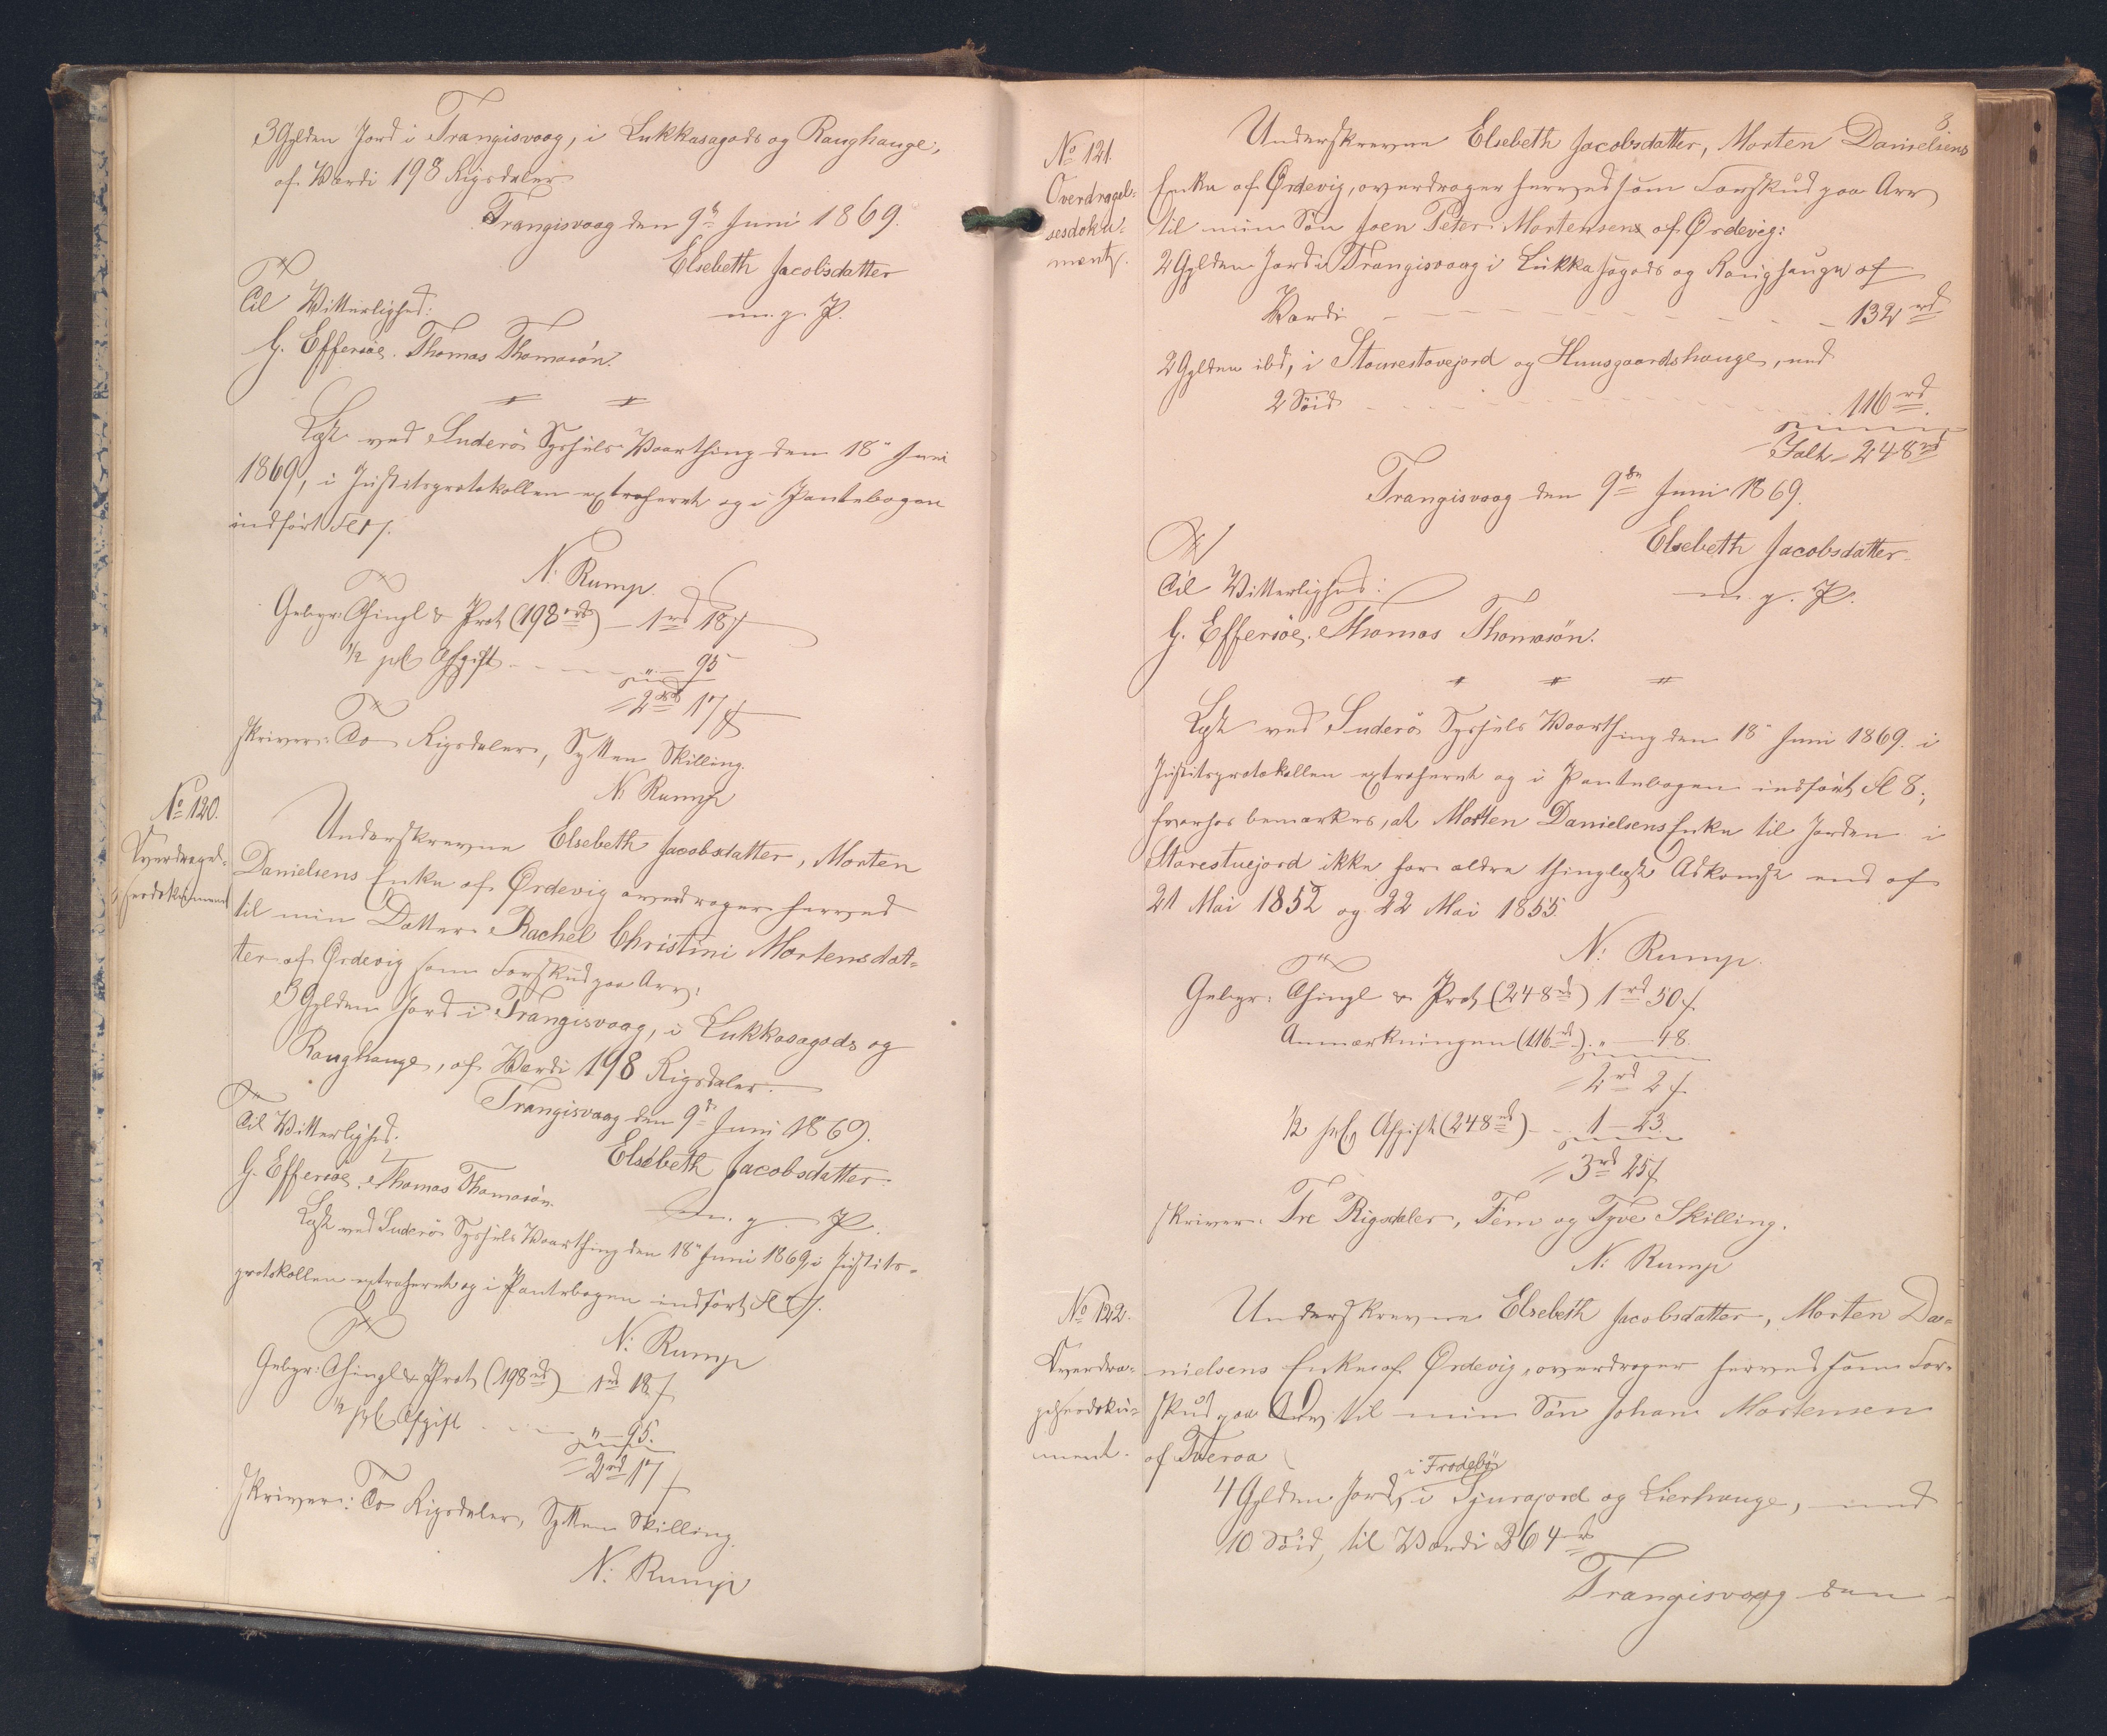 3 Gylden Jord i Trangisvaag, i Lukkasagods og Raughauge,
af Værdi 198 Rigsdaler
Trangisvaag den 9de Juni 1869.
Elsebeth Jacobsdatter
m. g. P.
Til Vitterlighed:
G. Effersöe. Thomas Thomasön.
Læst ved Suderö Syssels Vaarthing den 18de Juni
1869, i Justitsprotokollen extraheret og i Pantebogen
indført Fol 7.
N. Rump.
Gebyr: Thingl & Prot (198 rd) - 1 rd 18 ſ
1/2 pCt Afgift - - - " - 95
= 2 rd 17 ſ
skriver: To Rigsdaler, Sytten Skilling.
N. Rump
No 120.
Overdragel-
sesdokument
Underskrevne Elsebeth Jacobsdatter, Morten
Danielsens Enke af Ørdevig overdrager herved
til min Datter Rachel Christini Mortensdat-
ter af Ørdevig som Forskud paa Arv:
3 Gylden Jord i Trangisvaag, i Lukkasagods og
Raughauge, af Værdi 198 Rigsdaler.
Trangisvaag den 9de Juni 1869.
Til Vitterlighed.
Elsebeth Jacobsdatter.
G. Effersöe. Thomas Thomasön.
m. g. P.
Læst ved Suderö Syssels Vaarthing den 18de Juni 1869, i Justits-
protokollen extraheret og i Pantebogen indført Fol 7.
N. Rump
Gebyr: Thingl & Prot (198 rd) - 1 rd 18 ſ
1/2 pCt Afgift - - - " - 95.
= 2 rd 17 ſ
skriver: To Rigsdaler, Sytten Skilling.
N. Rump
8
No 121.
Overdragel-
sesdoku-
ment.
Underskrevne Elsebeth Jacobsdatter, Morten Danielsens
Enke af Ørdevig, overdrager herved som Forskud paa Arv
til min Søn Joen Peter Mortensen af Ørdevig:
2 Gylden Jord i Trangisvaag i Lukkasagods og Raughauge af
Værdi - - - 132 rd
2 Gylden ibd, i Stourestovejord og Huusgaardshauge, med
2 Söid - - - 116 rd.
Ialt = 248 rd
Trangisvaag den 9de Juni 1869.
Elsebeth Jacobsdatter
Til Vitterlighed:
m. g. P.
G. Effersöe. Thomas Thomasön.
Læst ved Suderö Syssels Vaarthing den 18de Juni 1869. i
Justitsprotokollen extraheret og i Pantebogen indført Fol 8.,
hvorhos bemærkes, at Morten Danielsens Enke til Jorden i
Storestuejord ikke har ældre thinglæst Adkomst end af
21 Mai 1852 og 22 Mai 1855.
N. Rump.
Gebyr: Thingl & Prot (248 rd) 1 rd 50 ſ
Anmærkningen (116 rd) " - 48.
= 2 rd 2 ſ
1/2 pCt Afgift (248 rd) - 1 - 23
= 3 rd 25 ſ
skriver: Tre Rigsdaler, Fem og Tyve Skilling.
N. Rump
No 122.
Overdra-
gelsesdoku-
ment.
Underskrevne Elsebeth Jacobsdatter, Morten Da-
nielsens Enke af Ørdevig, overdrager herved som For-
skud paa Arv til min Søn Johan Mortensen
af Tveraa
i Frodebö
4 Gylden Jord, i Sjurajord og Lierhauge, med
10 Söid, til Værdi 264 rd
Trangisvaag den